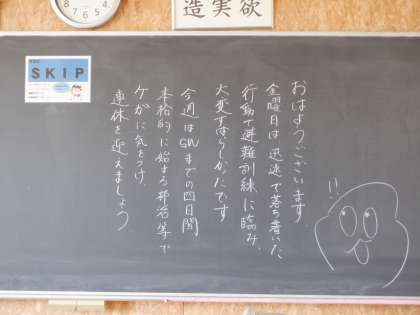 造実欲
SKIP
おはようございます。
金曜日は迅速で落ち着いた
行動で避難訓練に臨み、
大変すばらしかったです
今週はGWまでの四日間
本格的に始まる部活等で
ケガに気をつけ、
連休を迎えましょう
!!